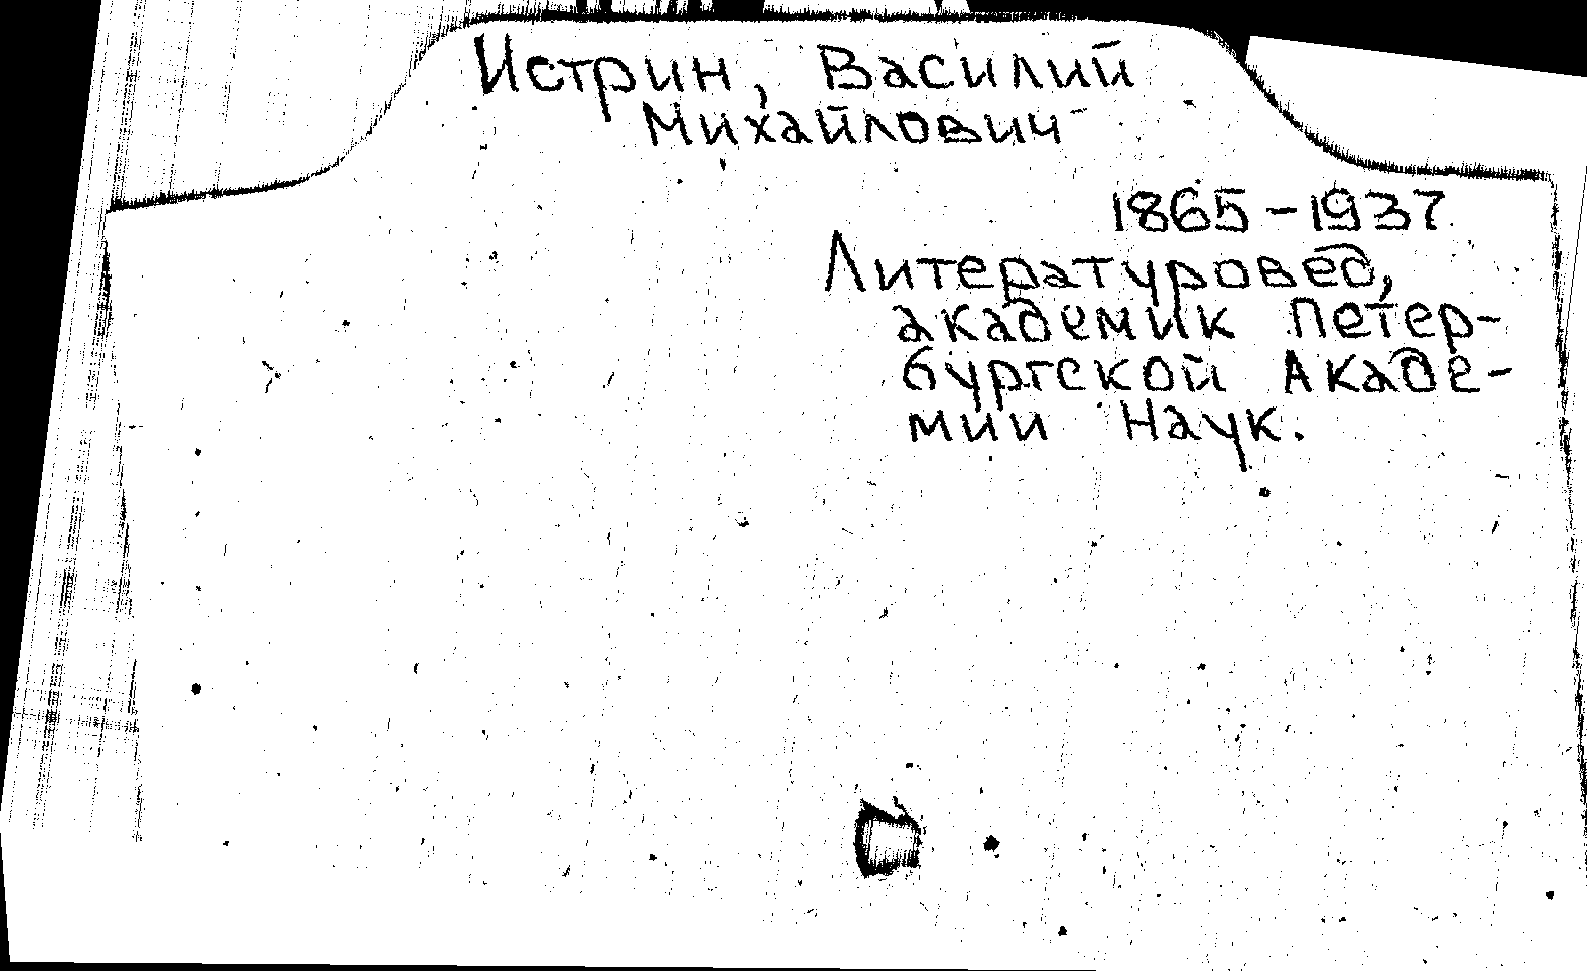 Истрин, Василий
Михайлович
1865-1937
Литературовед,
академик Петер-
бургской Акаде-
мии Наук.